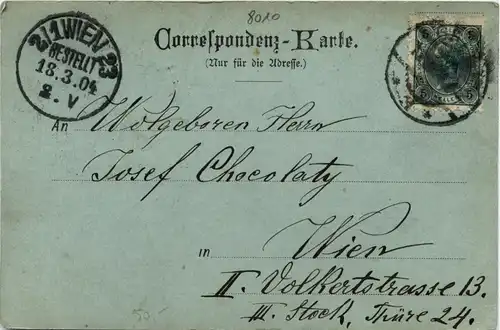 8010
2/1 WIEN 23
BESTELLT
18.3.04
2. V
Correspondenz-Karte.
(Nur für die Adresse.)
5 5
An Wolgeboren Herrn
Josef Chocolaty
in Wien
II. Volkertstrasse 13.
III. Stock, Thüre 24.
50.-